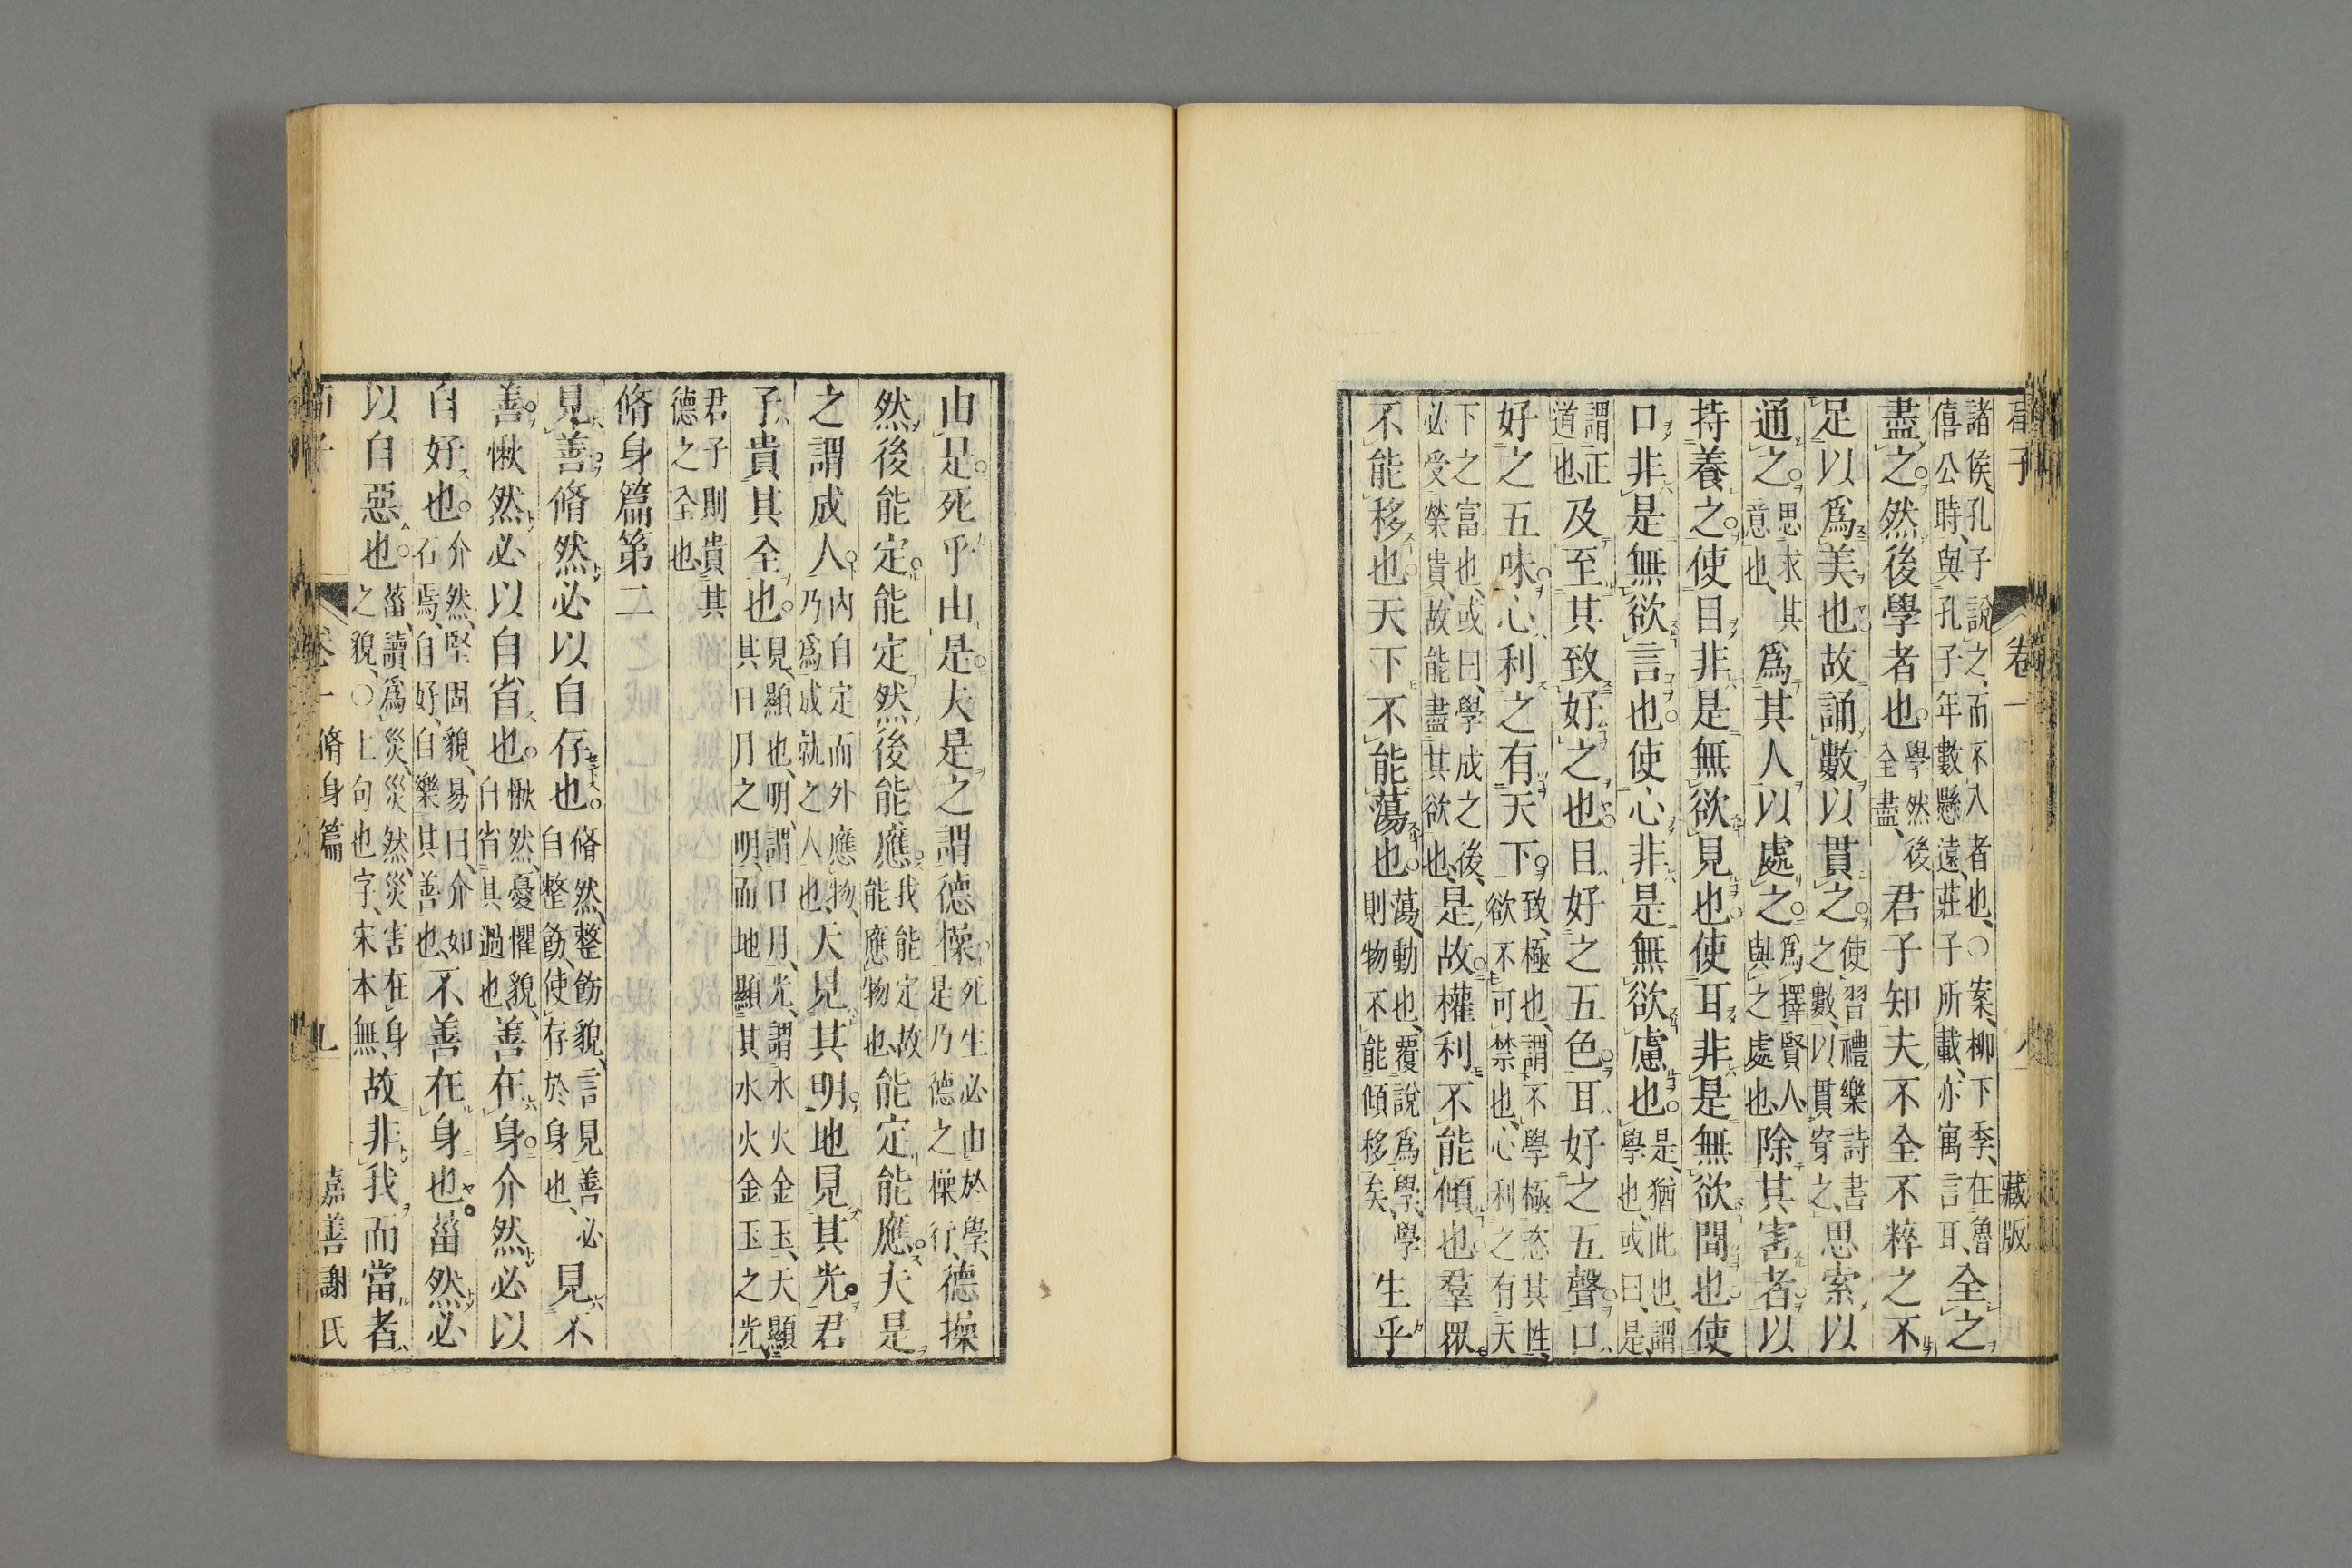 荀子 卷一 藏版
諸侯、孔子說之、而不入者也、○案、柳下季、在魯
僖公時、與孔子年數懸遠、莊子所載、亦寓言耳、全之
盡之。然後學者也。學然後
全盡、君子知夫不全不粹之不
足以爲美也。故誦數以貫之。使習禮樂詩書
之數、以貫穿之、思索以
通之。思求其
意也、爲其人以處之。爲擇賢人
與之處也、除其害者。以
持養之。使目非是無欲見也。使耳非是無欲聞也。使
口非是無欲言也。使心非是無欲慮也。是、猶此也、謂
學也、或曰、是、
謂正
道也、及至其致好之也。目好之五色。耳好之五聲。口
好之五味。心利之有天下。致、極也、謂不學極恣其性、
欲不可禁也、心利之有天
下之富也、或曰、學成之後、
必受榮貴、故能盡其欲也、是故。權利不能傾也。羣眾
不能移也。天下不能蕩也。蕩、動也、覆說爲學、學
則物不能傾移矣、生乎
由是。死乎由是。夫是之謂德操。死生必由於學、
是乃德之操行、德操
然後能定。能定然後能應。我能定故
能應物也、能定能應。夫是
之謂成人。內自定而外應物、
乃爲成就之人也、天見其明。地見其光。君
子貴其全也。見、顯也、明、謂日月、光、謂水火金玉、天顯
其日月之明、而地顯其水火金玉之光、
君子則貴其
德之全也、
脩身篇第二
見善。脩然必以自存也。脩然、整飭貌、言見善必
自整飭、使存於身也、見不
善。愀然必以自省也。愀然、憂懼貌、
自省其過也、善在身。介然必以
自好也。介然、堅固貌、易曰、介如
石焉、自好、自樂其善也、不善在身也。菑然必
以自惡也。菑、讀爲災、災然、災害在身
之貌、○上句也字、宋本無、故非我而當者、
荀子 卷一 脩身篇 九 嘉善謝氏